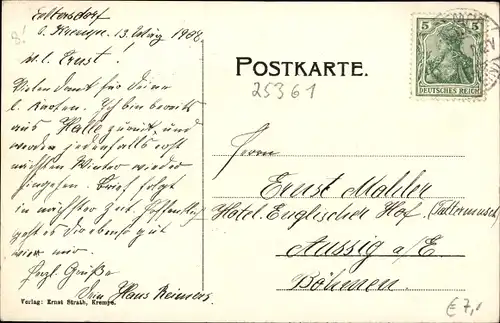 b. Krempe. 13. März 1908.
M. l. Ernst!
Vielen Dank für Deine
l. Karten. Ich bin bereits
aus Halle zurück, und
werde jedenfalls erst
nächsten Winter wieder
hingehen. Brief folgt
in nächster Zeit. Hoffentlich
geht es Dir ebenso gut
wie mir.
Herzl. Grüße
Dein Hans Reimers.
Verlag: Ernst Strath, Krempe.
POSTKARTE.
25361
5 5
DEUTSCHES REICH
Herrn
Ernst Mahler
Hotel Englischer Hof
Aussig a/E
Böhmen.
€ 7,-